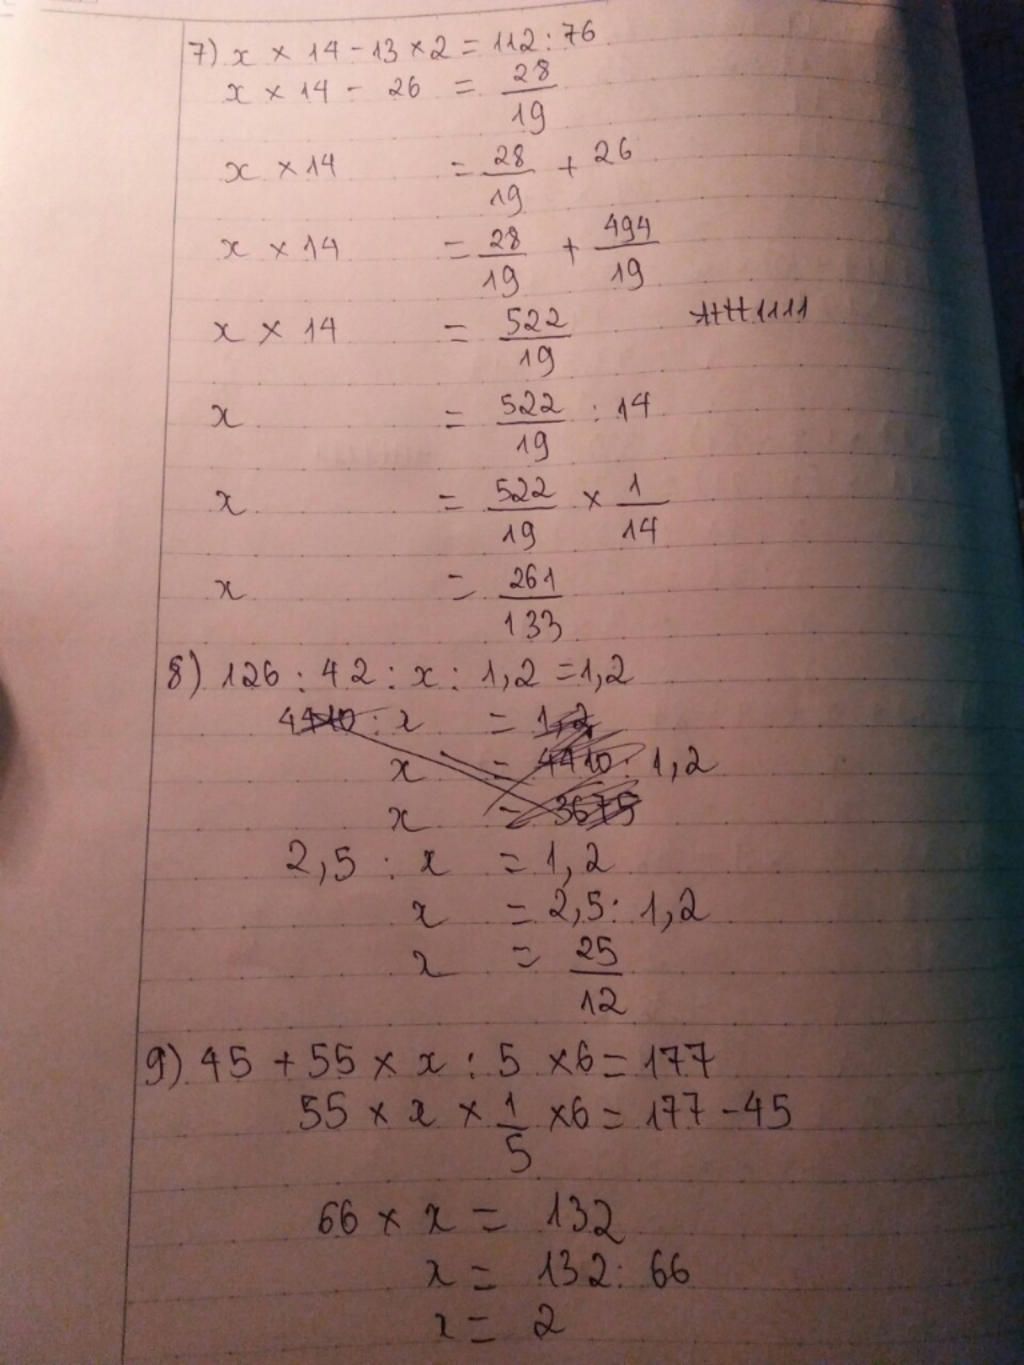 7) x × 14 - 13 × 2 = 112 : 76
x × 14 - 26 = 28/19
x × 14 = 28/19 + 26
x × 14 = 28/19 + 494/19
x × 14 = 522/19
x = 522/19 : 14
x = 522/19 × 1/14
x = 261/133
8) 126 : 42 : x : 1,2 = 1,2
4410 : x = 1,2
x = 4410 : 1,2
x = 3675
2,5 : x = 1,2
x = 2,5 : 1,2
x = 25/12
9) 45 + 55 × x : 5 × 6 = 177
55 × x × 1/5 × 6 = 177 - 45
66 × x = 132
x = 132 : 66
x = 2